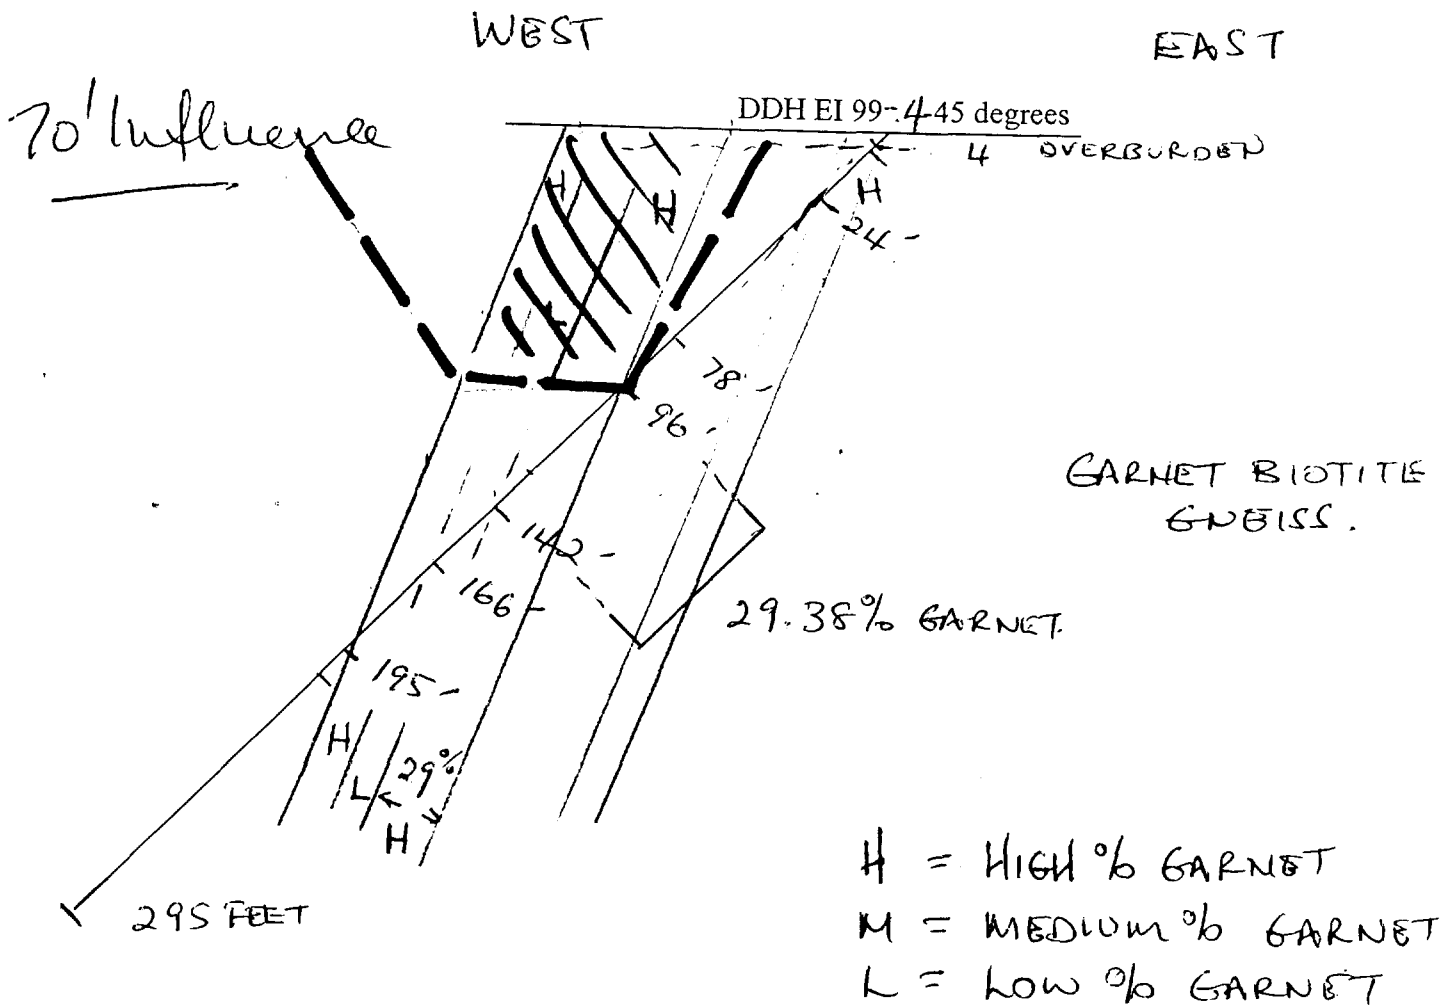 WEST
EAST
70' Influence
DDH EI 99-4-45 degrees
4 OVERBURDEN
H
H
H
24-
L
78-
96
GARNET BIOTITE
GNEISS.
142-
166-
29.38% GARNET.
195-
H
29%
L
H
H = HIGH % GARNET
295 FEET
M = MEDIUM % GARNET
L = LOW % GARNET